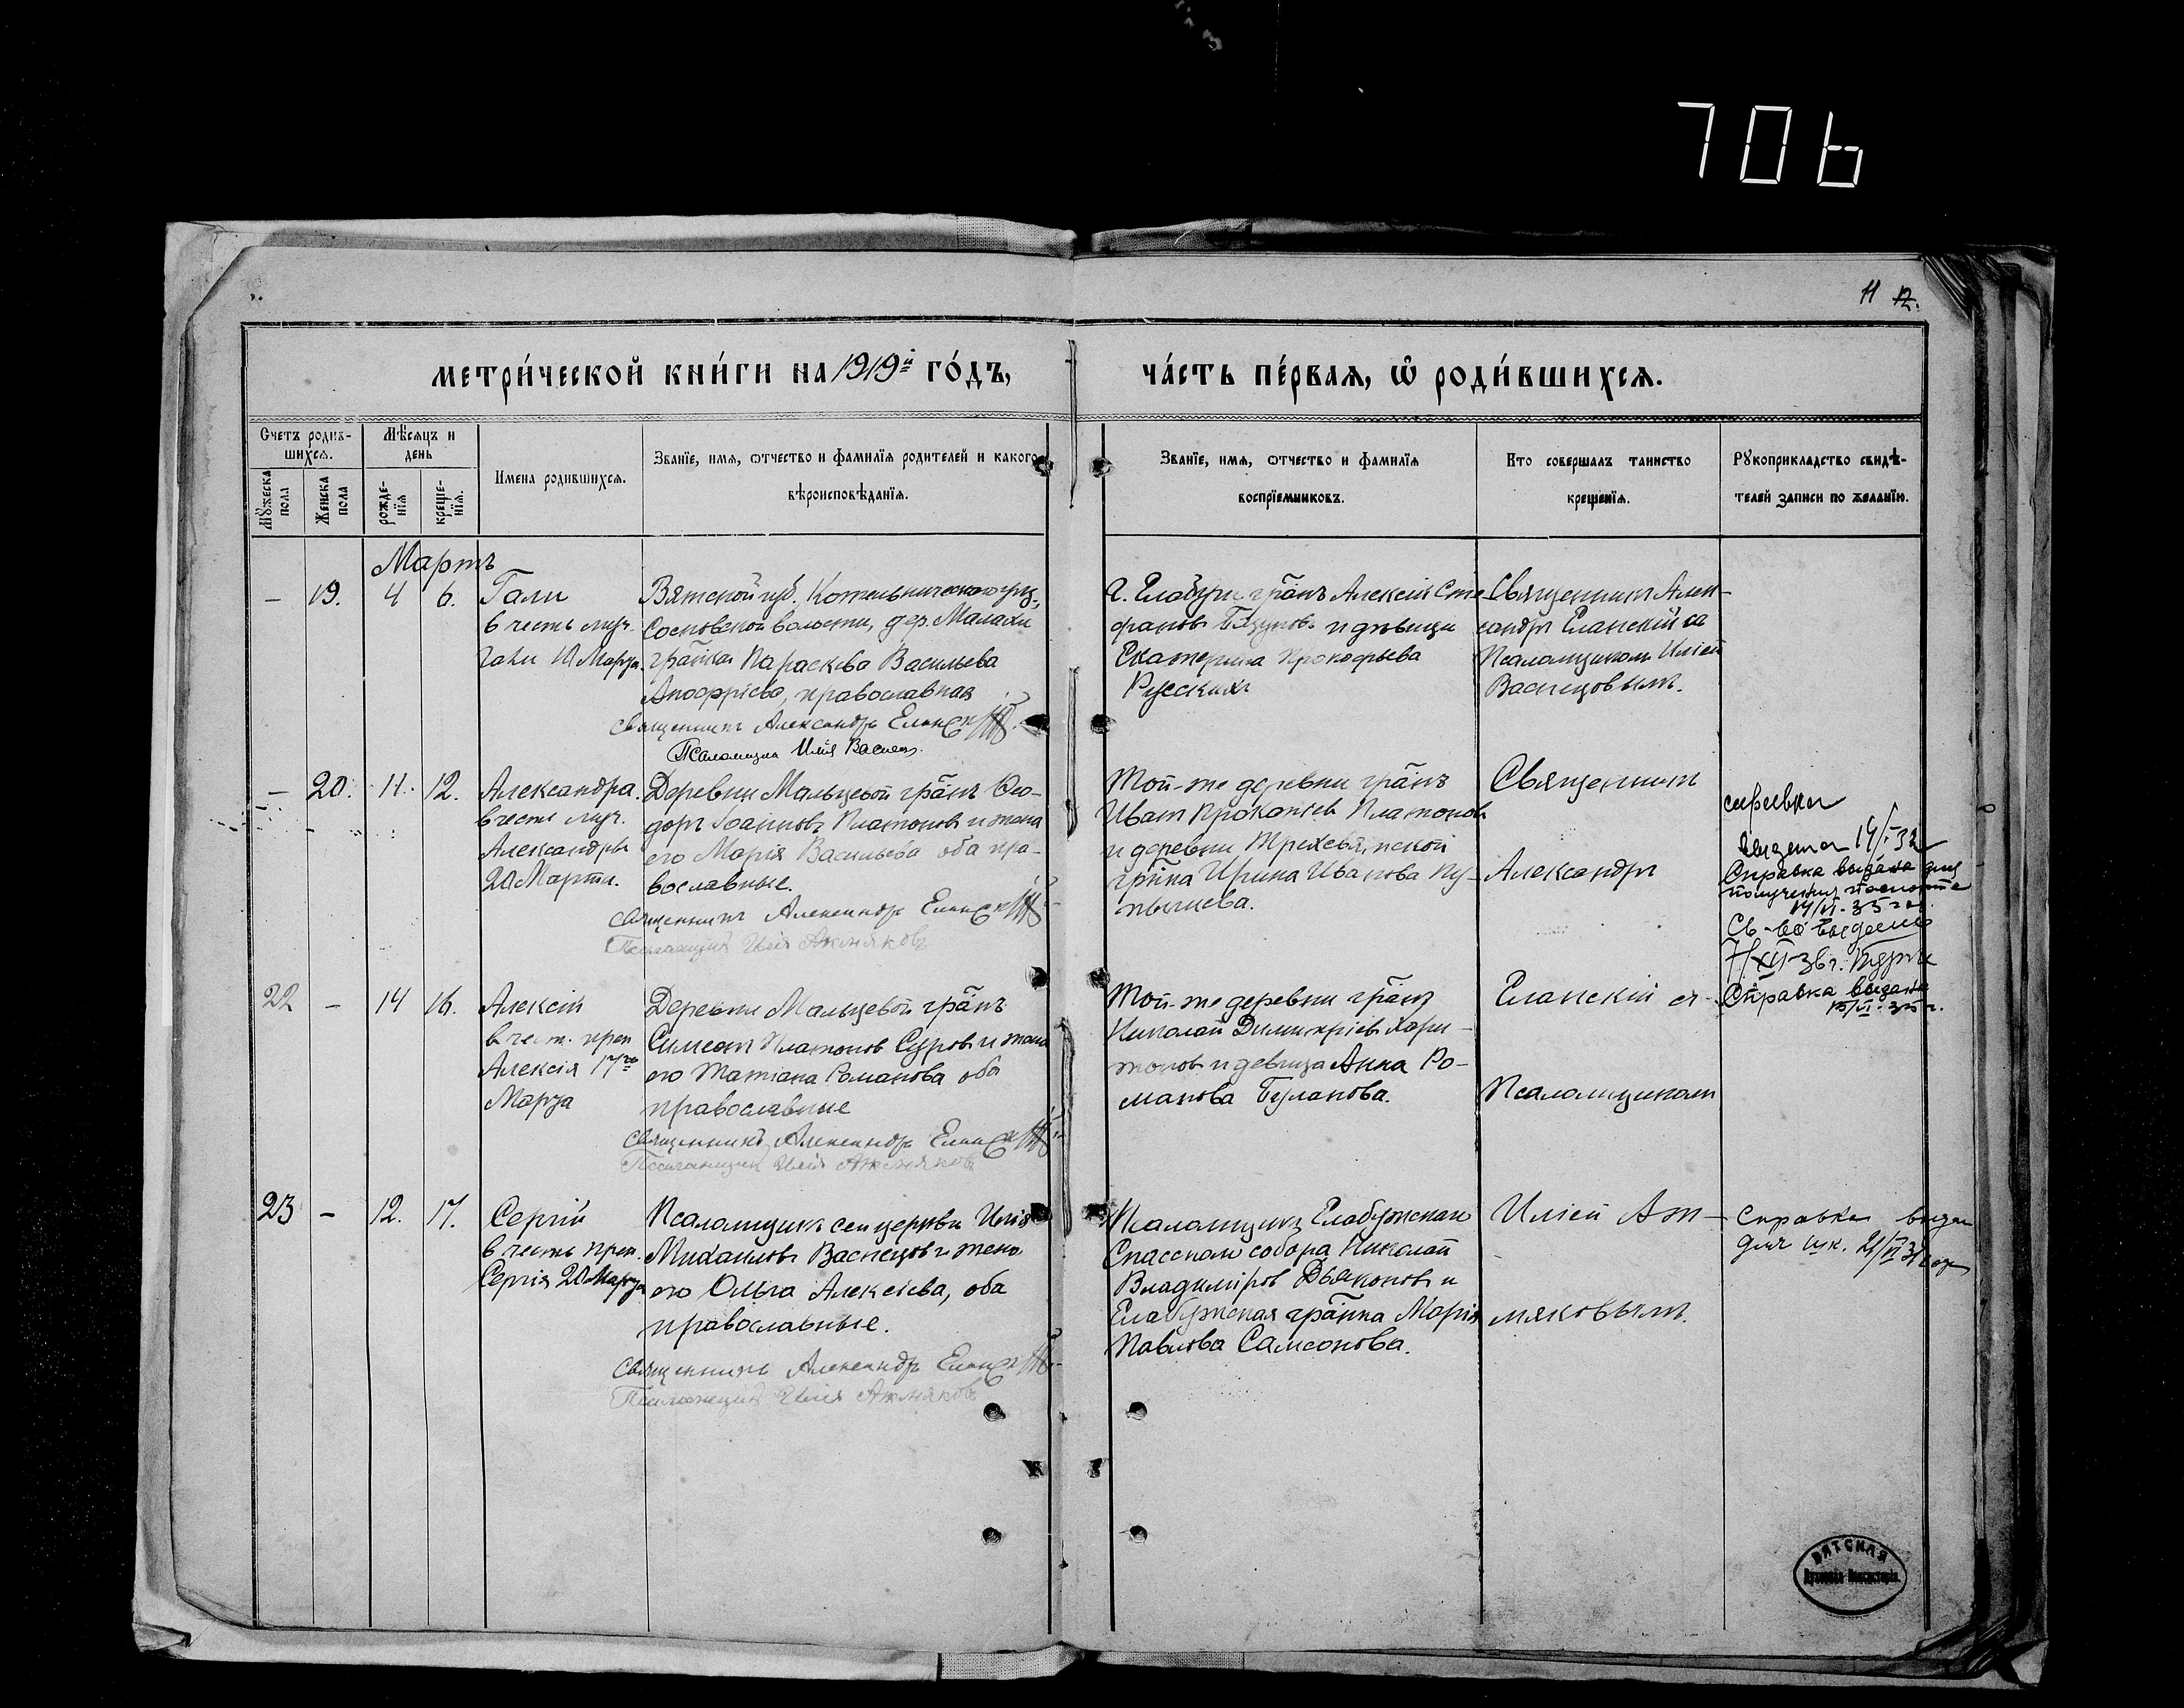 706
11 12.
МЕТРИ́ЧЕСКОЙ КНИ́ГИ НА 1919й ГО́ДЪ,
ЧА́СТЬ ПЕ́РВАЯ, Ѡ РОДИ́ВШИХСЯ.
Счетъ родив-
шихся.
Мѣсяцъ и
день
Мужеска
пола
Женска
пола
рожде-
нія
креще-
нія.
Имена родившихся.
Званіе, имя, отчество и фамилія родителей и какого
вѣроисповѣданія.
Званіе, имя, отчество и фамилія
воспріемниковъ.
Кто совершалъ таинство
крещенія.
Рукоприкладство свидѣ-
телей записи по желанію.
Мартъ
– 19. 4 6.
Вятской губ. Котельническаго уѣз.,
Сосновской волости, дер. Малахи
гр-нка Параскева Васильева
православная
Священникъ Александръ Еланскій
Псаломщикъ Илія Васнец.
г. Елабуги гр-нъ Алексій Сте-
фановъ и дѣвица
Екатерина Прокофьева
Русскихъ
Священникъ Алек-
сандръ Еланскій съ
Псаломщикомъ Иліей
Васнецовымъ.
– 20. 11. 12.
Александра.
в честь муч.
Александры
20 Марта.
Деревни Мальцевой гр-нъ Ѳео-
доръ Іоанновъ Платоновъ и жена
его Марія Васильева оба пра-
вославные.
Священникъ Александръ Еланскій
Псаломщикъ Илія Ажмяковъ
Той-же деревни гр-нъ
Иванъ Прокопіевъ Платоновъ
и деревни
гр-нка Ирина Иванова Пу-
пышева.
Священникъ
Александръ
Еланскій съ
Псаломщикомъ
Иліей Аж-
мяковымъ.
справка
выдана 19/I-32
Справка выдана для
получения паспорта
Св-во выдано
Справка выдана
22 – 14 16.
Алексій
в чест. преп
Алексія 17го
Марта
Деревни Мальцевой гр-нъ
Симеонъ Платоновъ Суровъ и жена
его Татіана Романова оба
православные
Священникъ Александръ Еланскій
Псаломщикъ Илія Ажмяковъ
Той-же деревни гр-нъ
Николай Димитріевъ Хари-
тоновъ и девица Анна Ро-
манова Буланова.
23 – 12. 17.
Сергій
в честь преп.
Сергія 20 Марта
Псаломщикъ сей церкви Илія
Михаиловъ Васнецовъ и жена
его Ольга Алексіева, оба
православные.
Священникъ Александръ Еланскій
Псаломщикъ Илія Ажмяковъ
Псаломщикъ Елабужскаго
Спасскаго собора Николай
Владиміровъ Дьяконовъ и
Елабужская гр-нка Марія
Павлова Самсонова.
Справка выдан
для
ВЯТСКАЯ
Духовная Консисторія